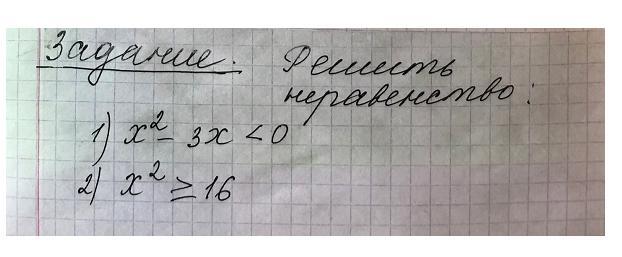 Задание. Решить
неравенство:
1) x² - 3x < 0
2) x² ≥ 16